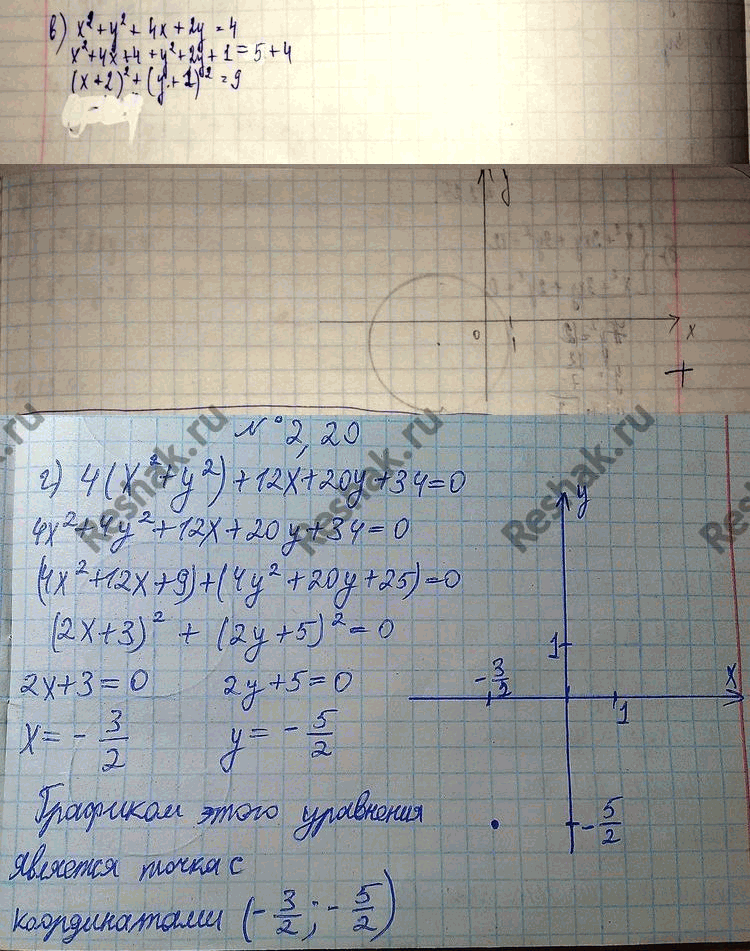 в) x² + y² + 4x + 2y = 4
x² + 4x + 4 + y² + 2y + 1 = 5 + 4
(x + 2)² + (y + 1)² = 9
y
0
1
x
№ 2,20
г) 4(x² + y²) + 12x + 20y + 34 = 0
4x² + 4y² + 12x + 20y + 34 = 0
(4x² + 12x + 9) + (4y² + 20y + 25) = 0
(2x + 3)² + (2y + 5)² = 0
2x + 3 = 0 2y + 5 = 0
x = - 3/2 y = - 5/2
y
1
- 3/2
x
1
- 5/2
Графиком этого уравнения
является точка с
координатами (- 3/2; - 5/2)
Reshak.ru
Reshak.ru
Reshak.ru
Reshak.ru